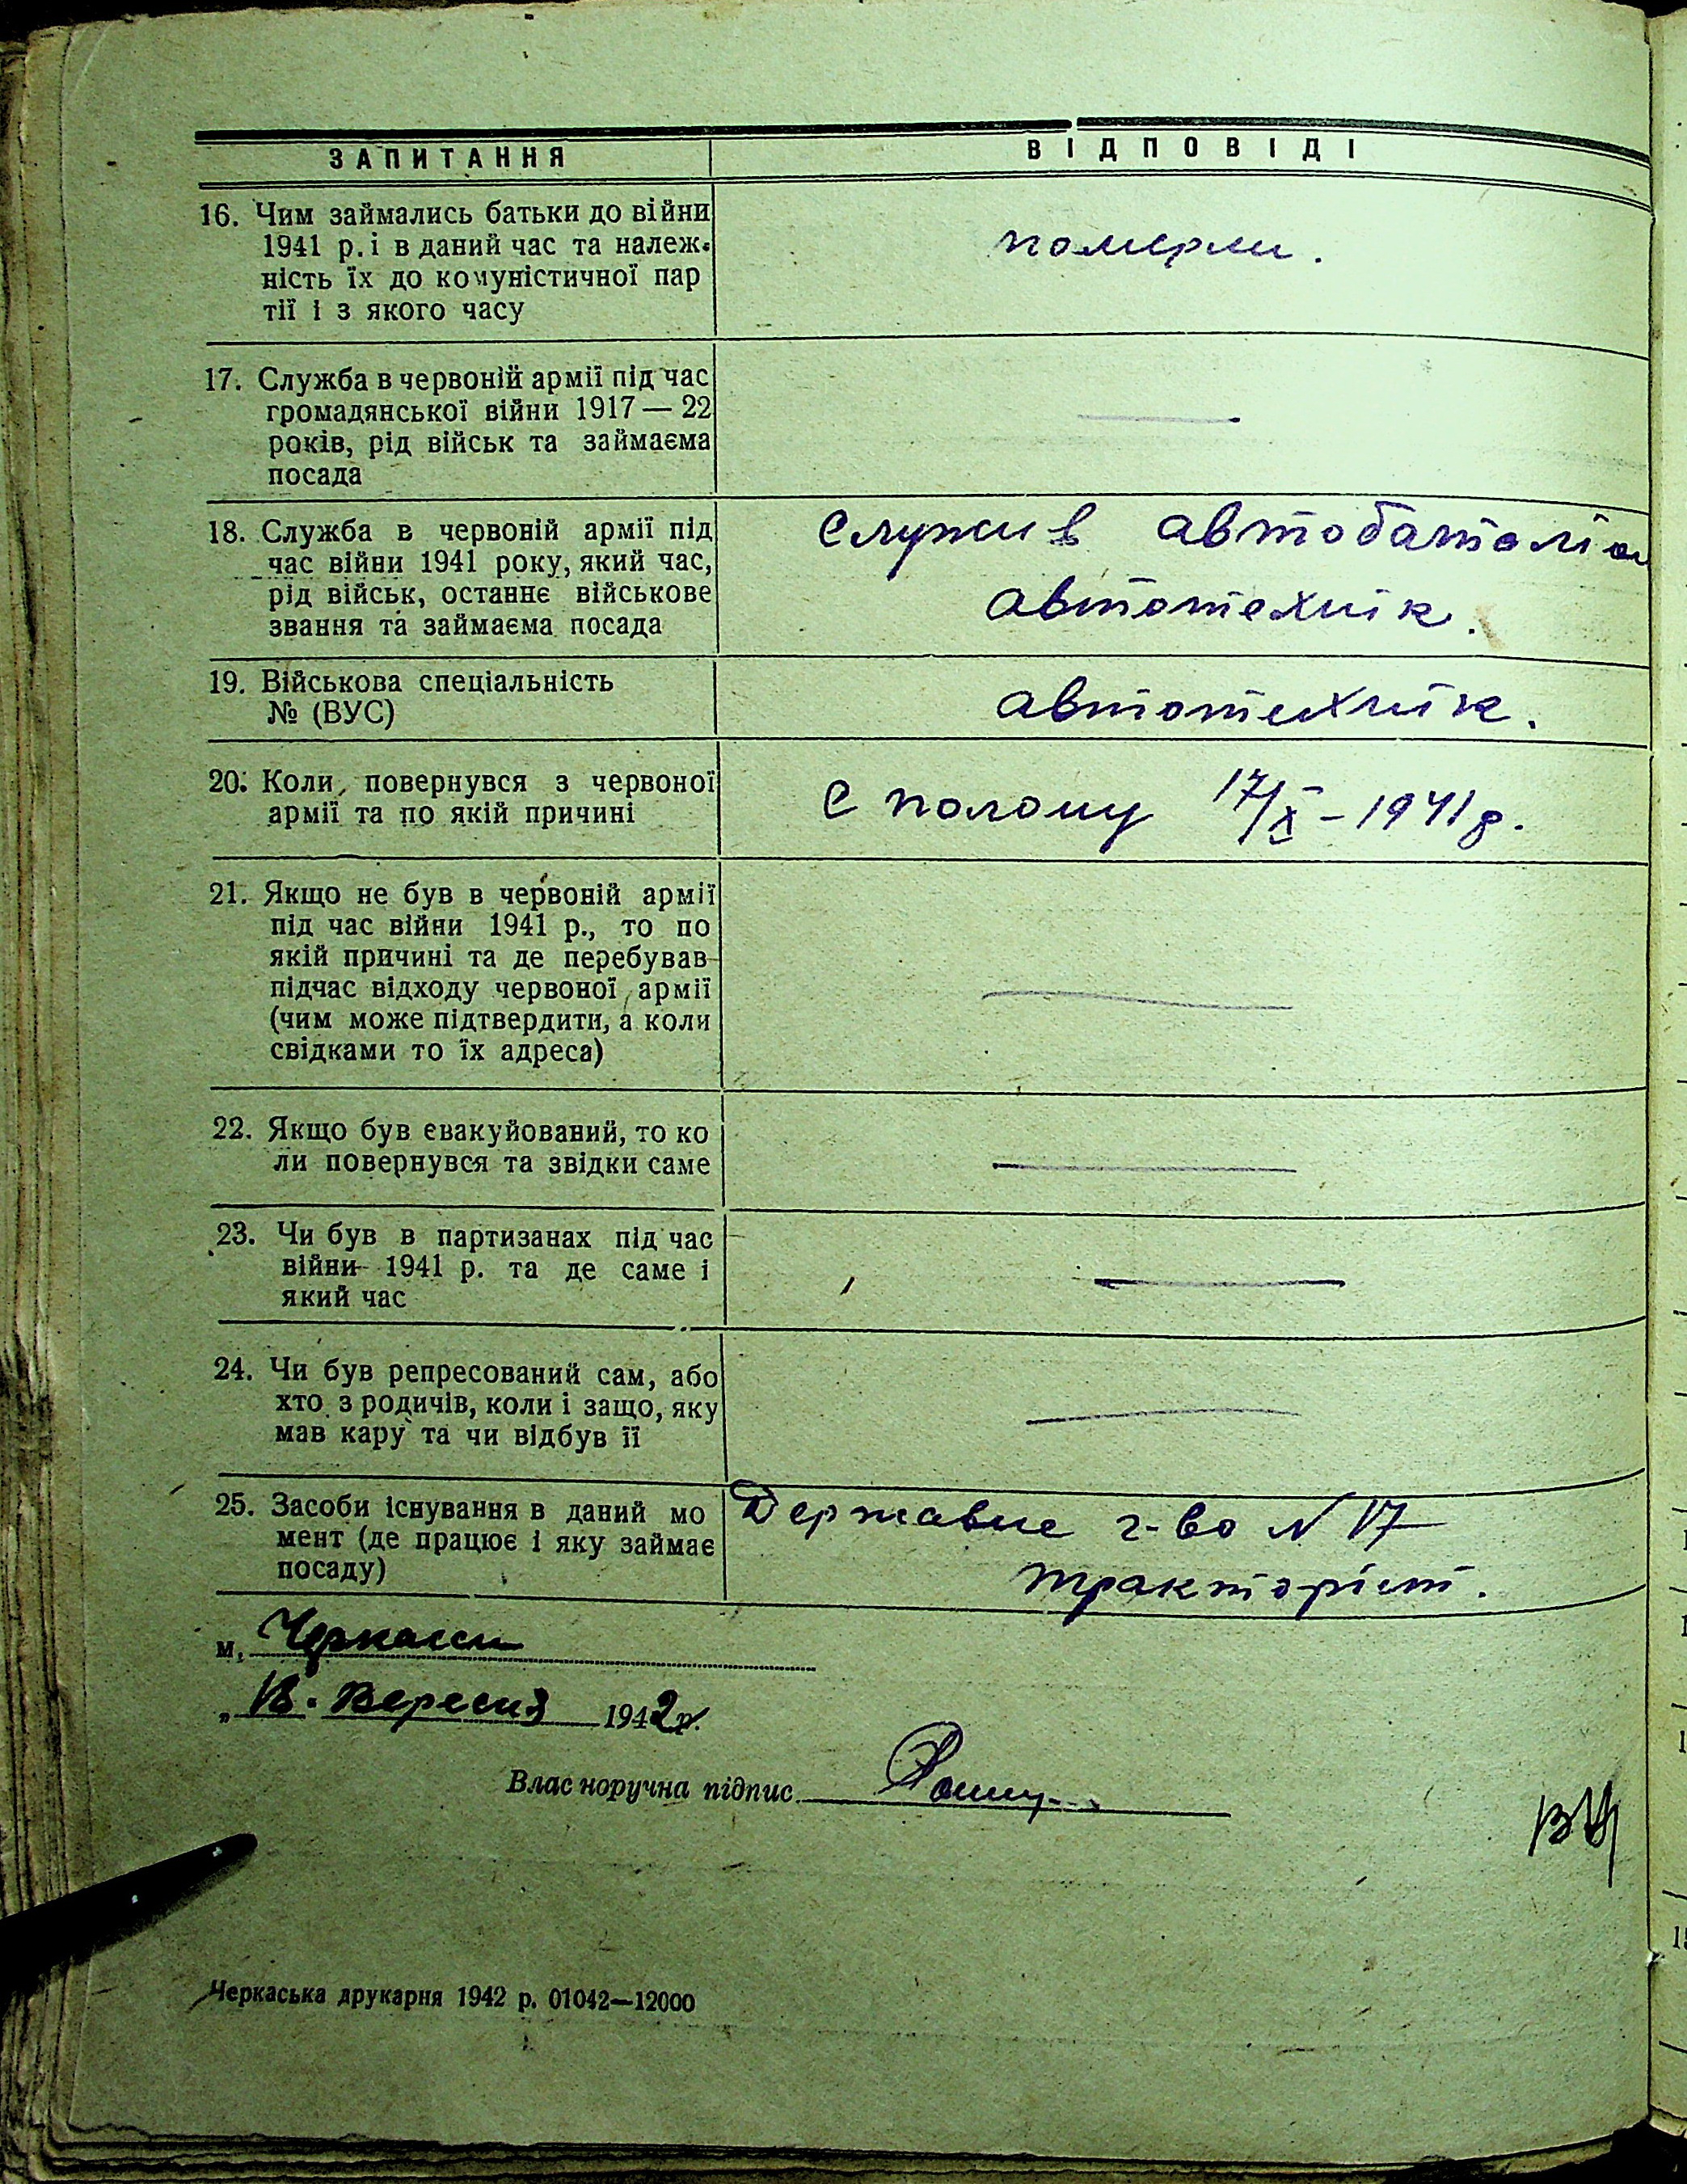 ЗАПИТАННЯ ВІДПОВІДІ
16. Чим займались батьки до війни
1941 р. і в даний час та належ-
ність їх до комуністичної пар
тії і з якого часу
померли.
17. Служба в червоній армії під час
громадянської війни 1917 — 22
років, рід військ та займаєма
посада
18. Служба в червоній армії під
час війни 1941 року, який час,
рід військ, останнє військове
звання та займаєма посада
Служив автобатальон
автотехнік.
19. Військова спеціальність
№ (ВУС)
автотехнік.
20. Коли повернувся з червоної
армії та по якій причині
С полону 17/X – 1941 р.
21. Якщо не був в червоній армії
під час війни 1941 р., то по
якій причині та де перебував
підчас відходу червоної армії
(чим може підтвердити, а коли
свідками то їх адреса)
22. Якщо був евакуйований, то ко
ли повернувся та звідки саме
23. Чи був в партизанах під час
війни 1941 р. та де саме і
який час
24. Чи був репресований сам, або
хто з родичів, коли і защо, яку
мав кару та чи відбув її
25. Засоби існування в даний мо
мент (де працює і яку займає
посаду)
Державне г-во N 17
тракторіст.
м. Черкасси
„ 18. Вересня 1942 р.
Власноручна підпис
Черкаська друкарня 1942 р. 01042—12000